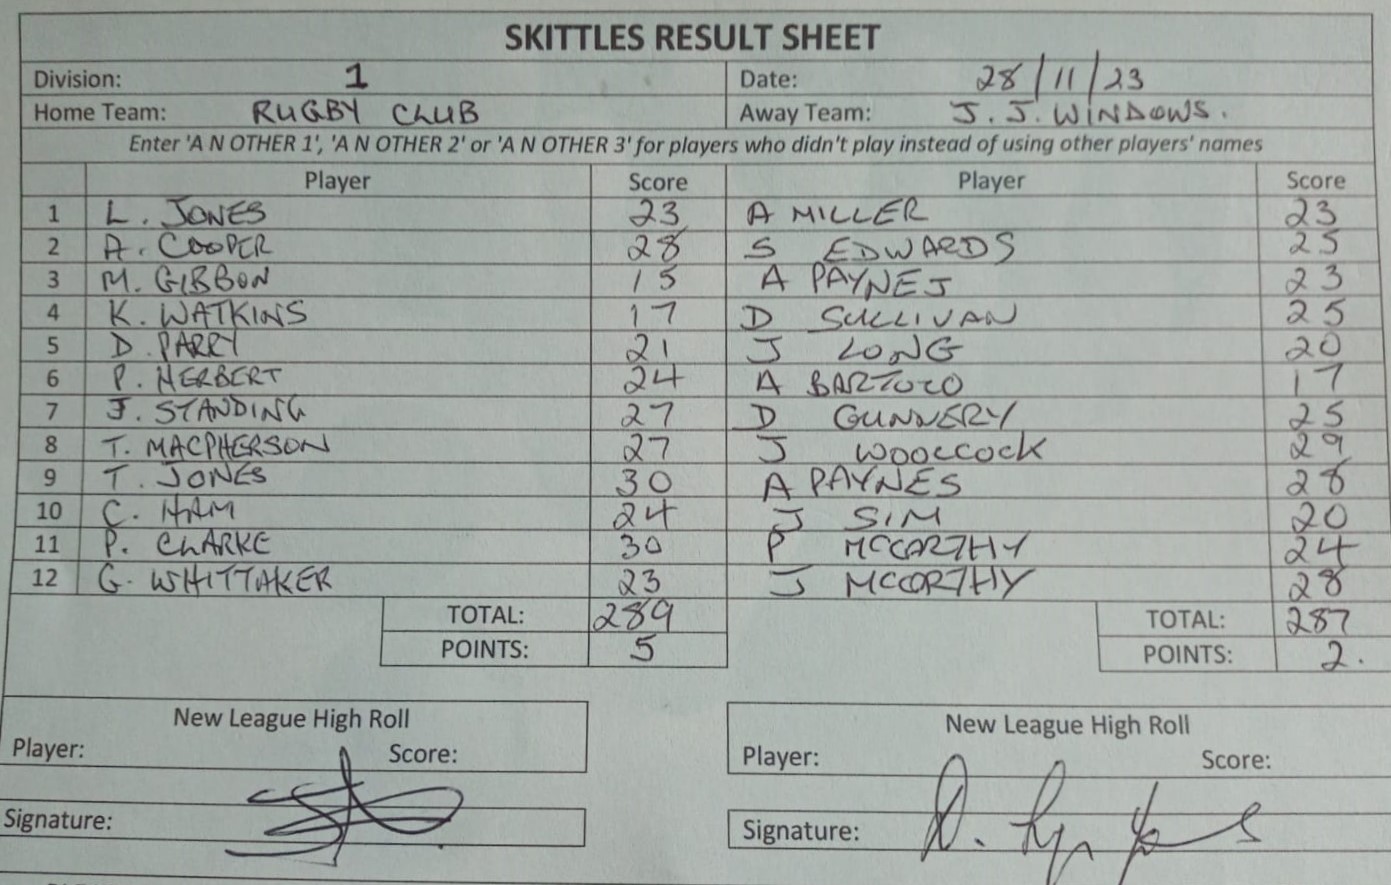 SKITTLES RESULT SHEET
Division: 1 Date: 28/11/23
Home Team: RUGBY CLUB Away Team: J. J. WINDOWS.
Enter 'A N OTHER 1', 'A N OTHER 2' or 'A N OTHER 3' for players who didn't play instead of using other players' names
Player Score Player Score
1 L. JONES 23 A MILLER 23
2 A. COOPER 28 S EDWARDS 25
3 M. GIBBON 15 A PAYNE J 23
4 K. WATKINS 17 D SULLIVAN 25
5 D. PARRY 21 J LONG 20
6 P. HERBERT 24 A BARTOLO 17
7 J. STANDING 27 D GUNNERY 25
8 T. MACPHERSON 27 J WOOLCOCK 29
9 T. JONES 30 A PAYNE S 28
10 C. HAM 24 J SIM 20
11 P. CLARKE 30 P MCCORTHY 24
12 G. WHITTAKER 23 J MCCORTHY 28
TOTAL: 289 TOTAL: 287
POINTS: 5 POINTS: 2.
New League High Roll New League High Roll
Player: Score: Player: Score:
Signature: Signature: